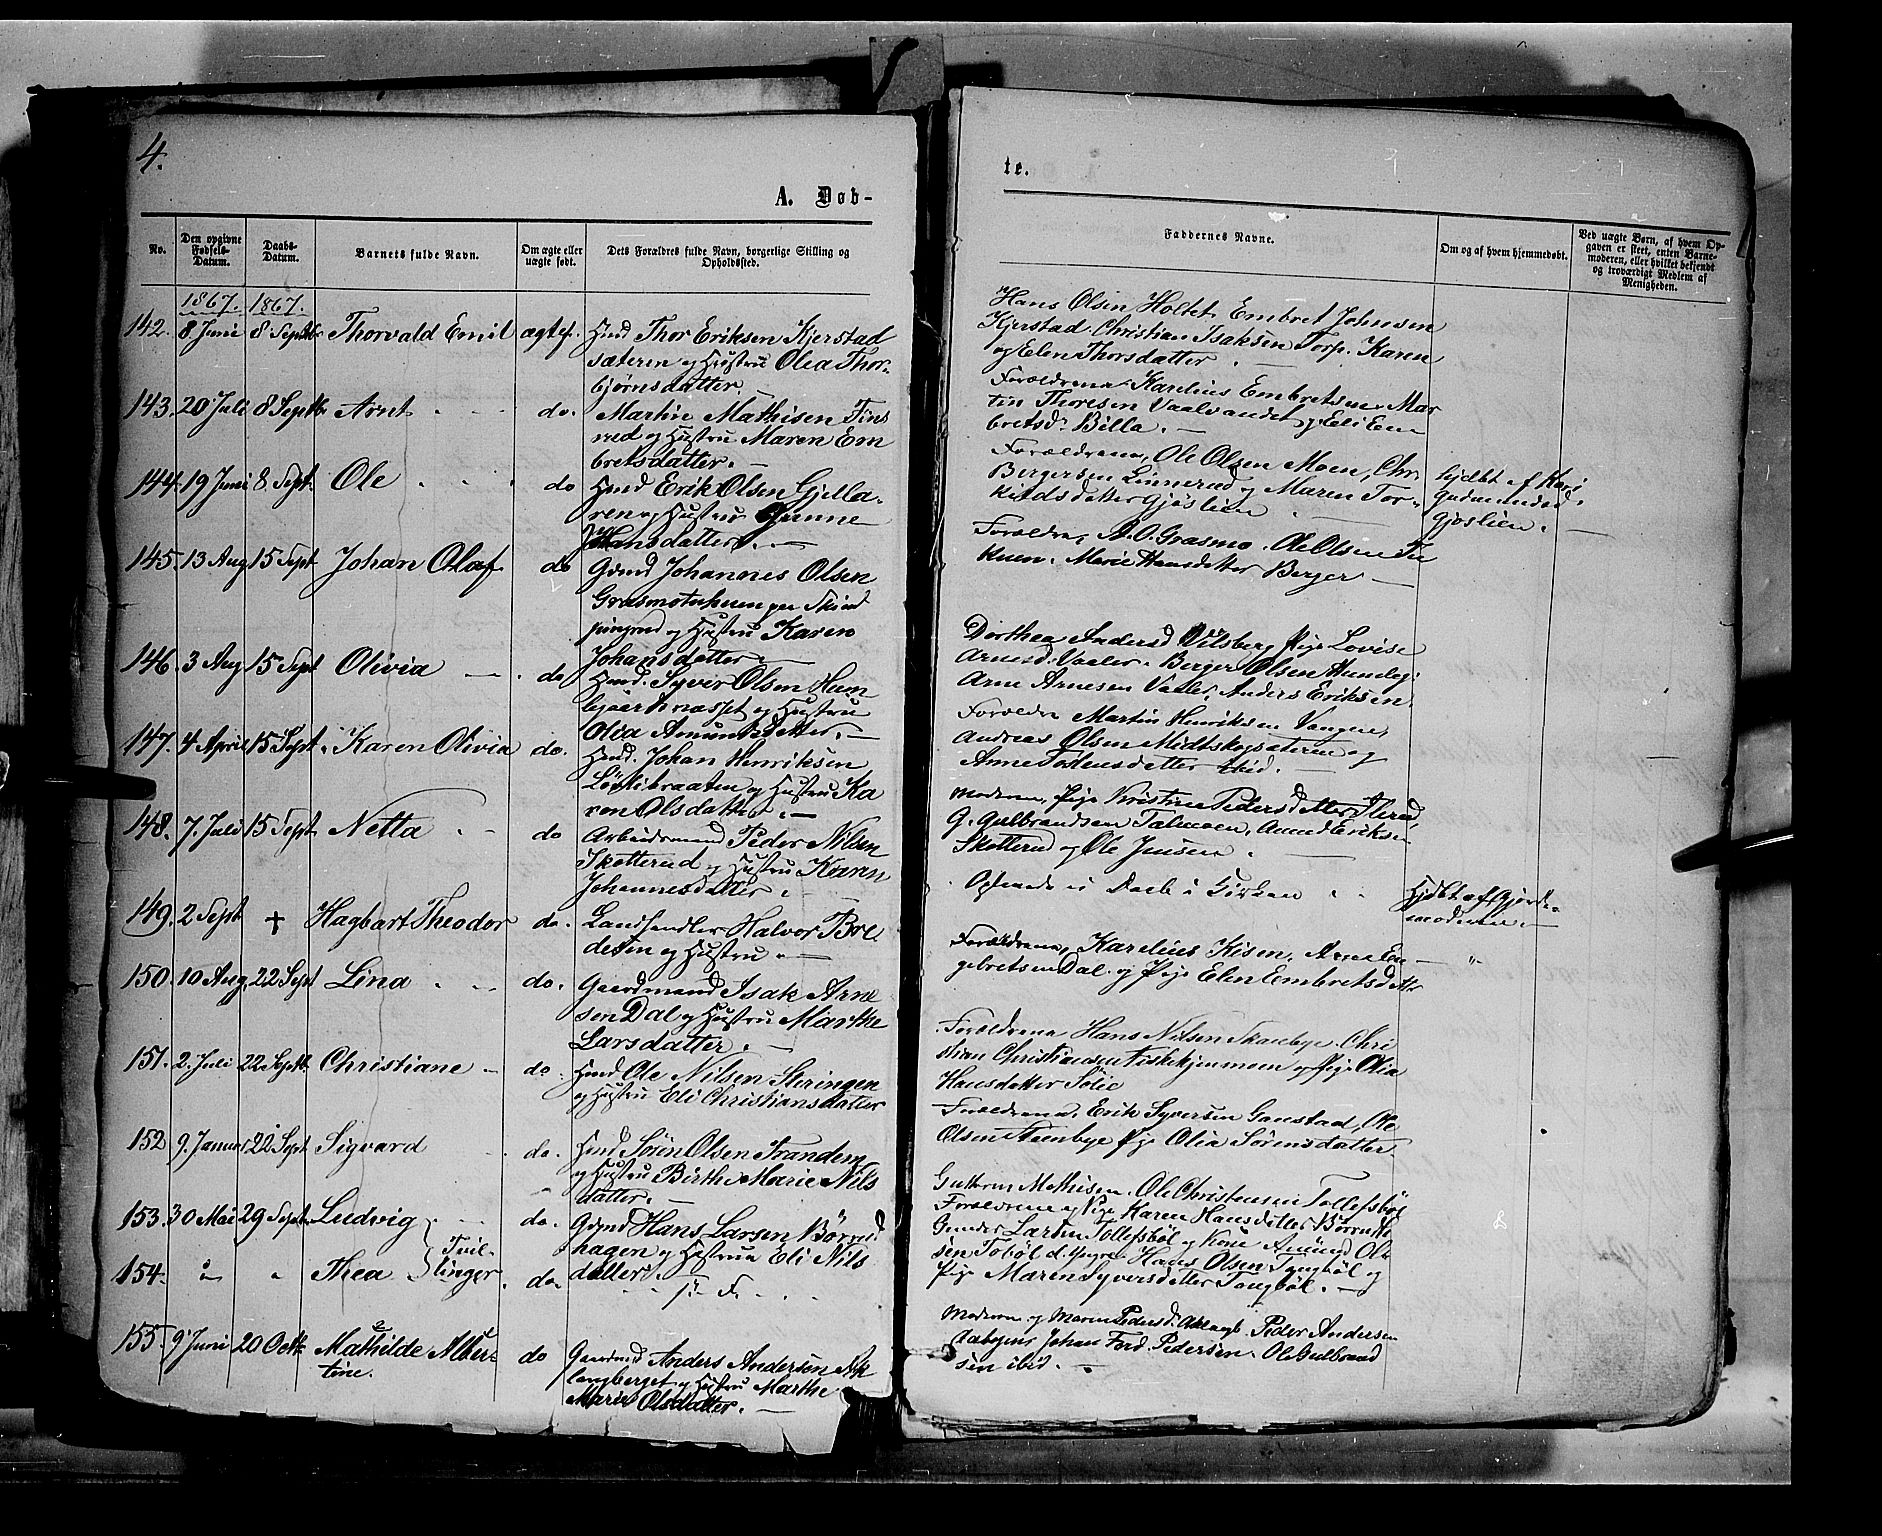 4.
A. Døb-
te.
No.
Den opgivne Fødsels-Datum.
Daabs-Datum.
Barnets fulde Navn.
Om ægte eller uægte født.
Dets Forældres fulde Navn, borgerlige Stilling og Opholdssted.
Faddernes Navne.
Om og af hvem hjemmedøbt.
Ved uægte Børn, af hvem Opgaven er skeet, enten Barnemoderen, eller hvilket bekjendt og troværdigt Medlem af Menigheden.
1867. 1867.
142. 8 Juni 8 Septbr Thorvald Emil ægtef. Hmd Thor Eriksen Kjerstad
sæteren og Hustru Olea Thor-
bjørnsdatter.
Hans Olsen Holtet Embret Johnsen
Kjerstad. Christian Isaksen Torp. Karen
og Elen Thorsdatter
143. 20 Juli 8 Septbr Arnt do. Martin Mathisen Tins
rud og Hustru Maren Em
bretsdatter.
Forældrene Karelius Embretsen Mar
tin Thoresen Vaalvandet og Eli Em
bretsd. Billa.
144. 19 Juni 8. Sept. Ole do Hmd Erik Olsen Gjella-
ren og Hustru Gunne
Hansdatter.
Forældrene, Ole Olsen Moen, Chr.
Bergersen Linnerud og Maren Tor-
kildsdatter Gjøslien
hjdbt af Kari
Gudmundsd.
Gjøslien.
145. 13 Aug 15 Sept Johan Olaf do Gmd Johannes Olsen
og Hustru Karen
Johansdatter.
Forældre, A. O. Græsmo. Ole Olsen
Marie Hansdatter Berger
146. 3 Aug 15 Sept Olivia do Hmd. Syver Olsen Hum
og Hustru
Olia Amundsdatter.
Dorthea Andersd Pige Lovise
Arnesd. Vaaler. Berger Olsen
Arne Arnesen Vaaler, Anders Eriksen
147. 4 April 15 Sept. Karen Olivia do. Hmd. Johan Henriksen
og Hustru Ka
ren Olsdatter.
Forældre Martin Henriksen Vangen,
Andreas Olsen Midtskogsæteren og
Anne Tostensdatter ibid.
148. 7. Juli 15 Sept. Netta do Arbeidsmand Peder Nilsen
Skotterud og Hustru Karen
Johannesdatter.
Moderen, Pige Kristine Pedersdatter
G. Gulbrandsen Amund Eriksen
Skotterud og Ole Jensen.
149. 2 Sept † Hagbart Theodor do. Landhandler Halvor Bre
desen og Hustru
i Daab i Kirken
Hjdbt af Gjorde-
moderen.
150. 10 Aug 22 Sept Lina do. Gaardmand Isak Arne
sen Dal og Hustru Marthe
Larsdatter.
Forældrene, Karelius Arne En
gebretsen Dal. og Pige Elen Embretsdatter
151. 2. Juli 22 Septb. Christiane do. Hmd Ole Nilsen Steringen
og Hustru Eli Christiansdatter
Forældrene Hans Nilsen Skanbye. Chri
stian Christiansen og Pige Olia
Hansdatter Sølie
152 9. Januar 22 Sept Sigvard do. Hmd Søren Olsen Strandem
og Hustru Birthe Marie Nils
datter.
Forældrene, Erik Syversen Gaustad, Ole
Olsen Pige Olia Sørensdatter.
153. 30 Mai 29 Sept. Ludvig do. Gmd Hans Larsen Børrud
hagen og Hustrue Eli Nils
datter
Guttorm Mathisen. Ole Christensen Tollefsbøl
Forældrene og Pige Karen Hansdatter
Tvil-
linger
154. " " Thea do. S. F.
Larsen Tollefsbøl og Kone Amund Ol-
sen Tobøl d. Yngre. Hans Olsen Tangbøl og
Pige Maren Syversdatter Tangbøl.
155. 9 Juni 20 Octb. Mathilde Alber-
tine. do Gaardmd Anders Andersen
og Hustru Marthe
Marie Olsdatter.
Moderen og Maren Pedersd. Peder Andersen
Johan Ferd. Pedersen. Ole Gulbrand
sen ibid.